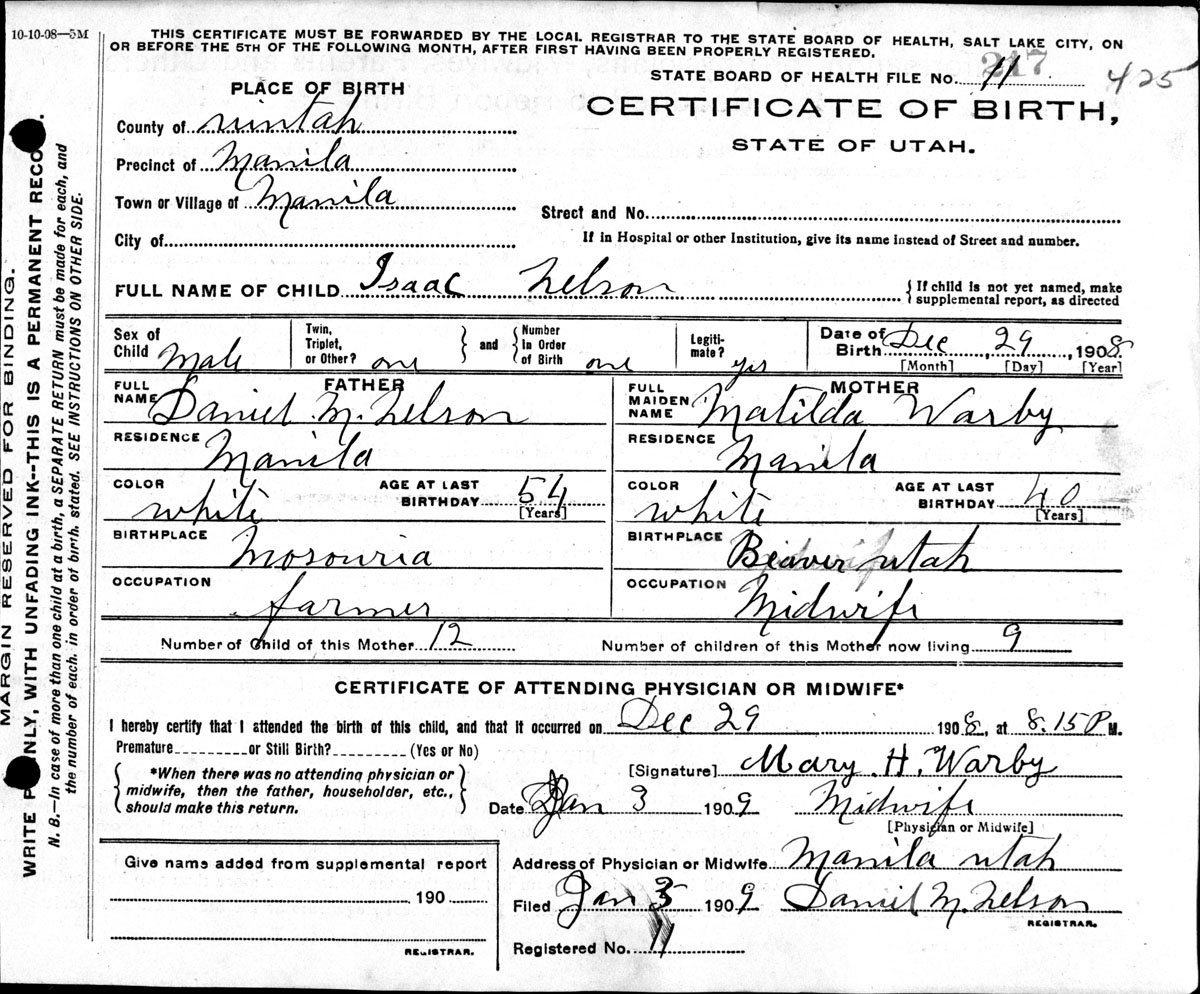 10-10-08—5M
THIS CERTIFICATE MUST BE FORWARDED BY THE LOCAL REGISTRAR TO THE STATE BOARD OF HEALTH, SALT LAKE CITY, ON
OR BEFORE THE 5TH OF THE FOLLOWING MONTH, AFTER FIRST HAVING BEEN PROPERLY REGISTERED.
STATE BOARD OF HEALTH FILE No. 11 217 425
PLACE OF BIRTH
CERTIFICATE OF BIRTH,
STATE OF UTAH.
County of Uintah
Precinct of Manila
Town or Village of Manila
Street and No.
City of
If in Hospital or other Institution, give its name instead of Street and number.
FULL NAME OF CHILD Isaac Nelson
{ If child is not yet named, make
supplemental report, as directed
Sex of Child Male
Twin, Triplet, or Other? one } and { Number In Order of Birth one
Legiti-mate? yes
Date of Birth Dec, 29, 1908
[Month] [Day] [Year]
FATHER
FULL NAME Daniel M. Nelson
RESIDENCE Manila
COLOR white AGE AT LAST BIRTHDAY 54 [Years]
BIRTHPLACE Mosouria
OCCUPATION farmer
MOTHER
FULL MAIDEN NAME Matilda Warby
RESIDENCE Manila
COLOR white AGE AT LAST BIRTHDAY 40 [Years]
BIRTHPLACE Beaver utah
OCCUPATION Midwife
Number of Child of this Mother 12 Number of children of this Mother now living 9
CERTIFICATE OF ATTENDING PHYSICIAN OR MIDWIFE*
I hereby certify that I attended the birth of this child, and that it occurred on Dec 29 1908, at 8.15 P M.
Premature or Still Birth? (Yes or No)
{ *When there was no attending physician or
midwife, then the father, householder, etc.,
should make this return. }
[Signature] Mary H. Warby
Date Jan 3 1909 Midwife
[Physician or Midwife]
Give name added from supplemental report
190
REGISTRAR.
Address of Physician or Midwife Manila utah
Filed Jan 3 1909 Daniel M. Nelson
REGISTRAR.
Registered No. 11
MARGIN RESERVED FOR BINDING.
WRITE PLAINLY, WITH UNFADING INK--THIS IS A PERMANENT RECORD.
N. B.—In case of more than one child at a birth, a SEPARATE RETURN must be made for each, and
the number of each, in order of birth, stated. SEE INSTRUCTIONS ON OTHER SIDE.